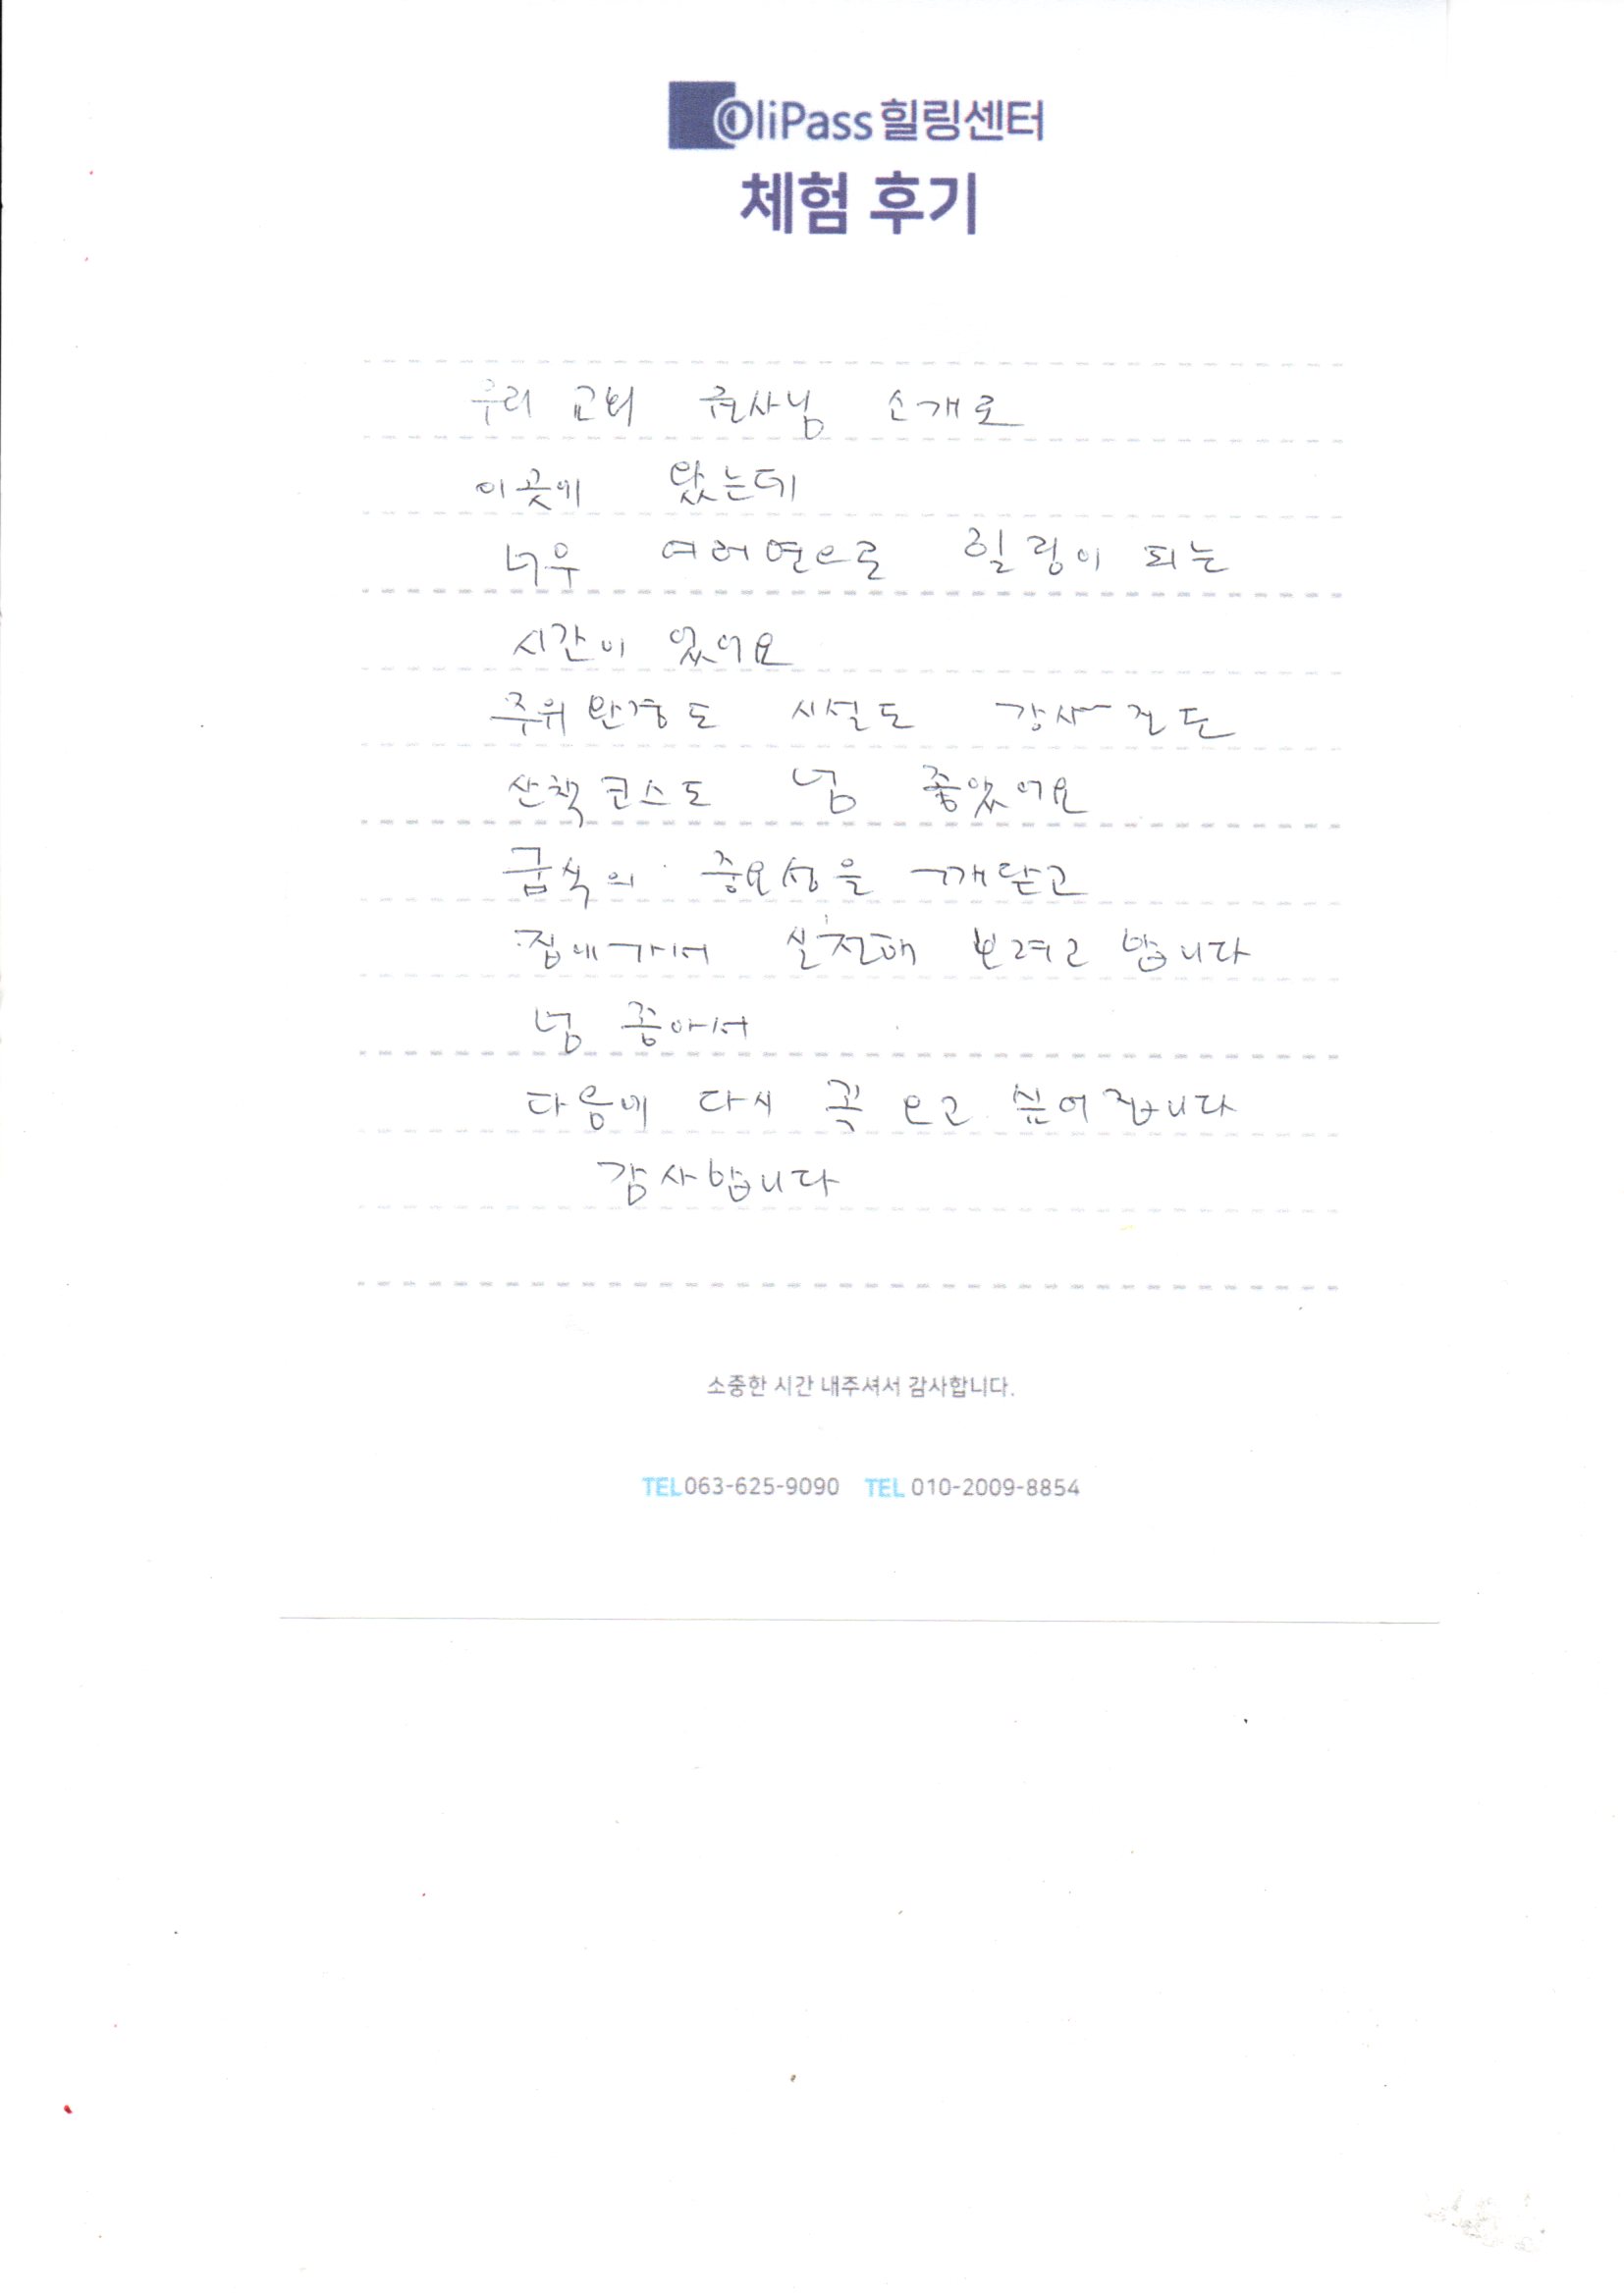 OliPass 힐링센터
체험 후기
우리 교회 권사님 소개로
이곳에 왔는데
너무 여러면으로 힐링이 되는
시간이 있어요
주위 환경도 시설도 강사진도
산책코스도 넘 좋았어요
금식의 중요성을 깨닫고
집에가서 실천해 보려고 합니다
넘 좋아서
다음에 다시 꼭 오고 싶어집니다
감사합니다
소중한 시간 내주셔서 감사합니다.
TEL 063-625-9090 TEL 010-2009-8854